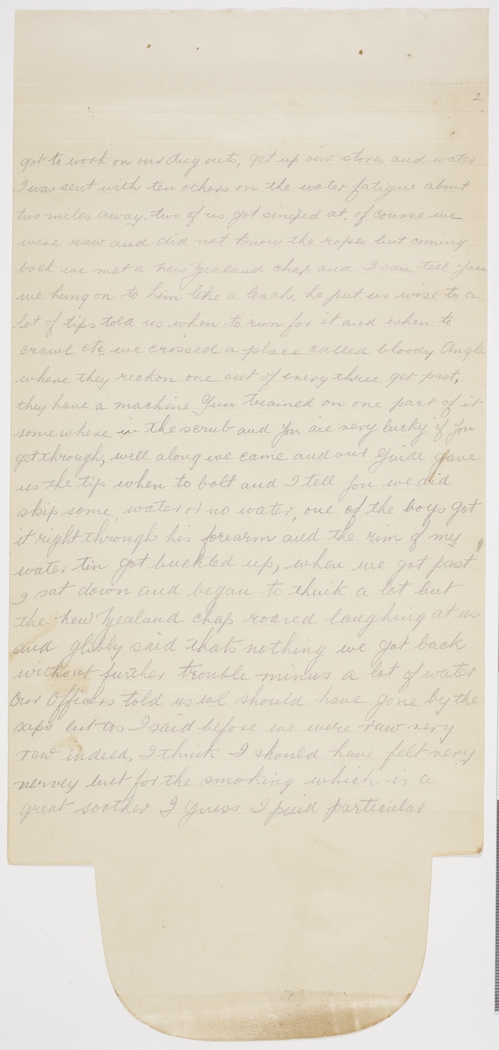 2
got to work on our dug outs, get up our stores and water
I was sent with ten others on the water fatigue about
two miles away. two of us got sniped at. of course we
were raw and did not know the ropes but coming
back we met a New Zealand chap and I can tell you
we hung on to him like a leach, he put us wise to a
lot of tips told us when to run for it and when to
crawl etc. we crossed a place called bloody Angle
where they rickon one out of every three get past,
they have a machine Gun trained on one part of it
somewhere in the scrub and you are very lucky if you
get through, well along we came and our Guide gave
us the tip when to bolt and I tell you we did
skip some, water or no water, one of the boys got
it right through his forearm and the rim of my
water tin got buckled up, when we got past
I sat down and began to think a lot but
the New Zealand chap roared laughing at us
and glibly said thats nothing we got back
without further trouble minus a lot of water
Our Officers told us we should have gone by the
saps but as I said before we were raw very
raw indeed, I think I should have felt very
nervey but for the smoking which is a
great soother I Guess I paid particular